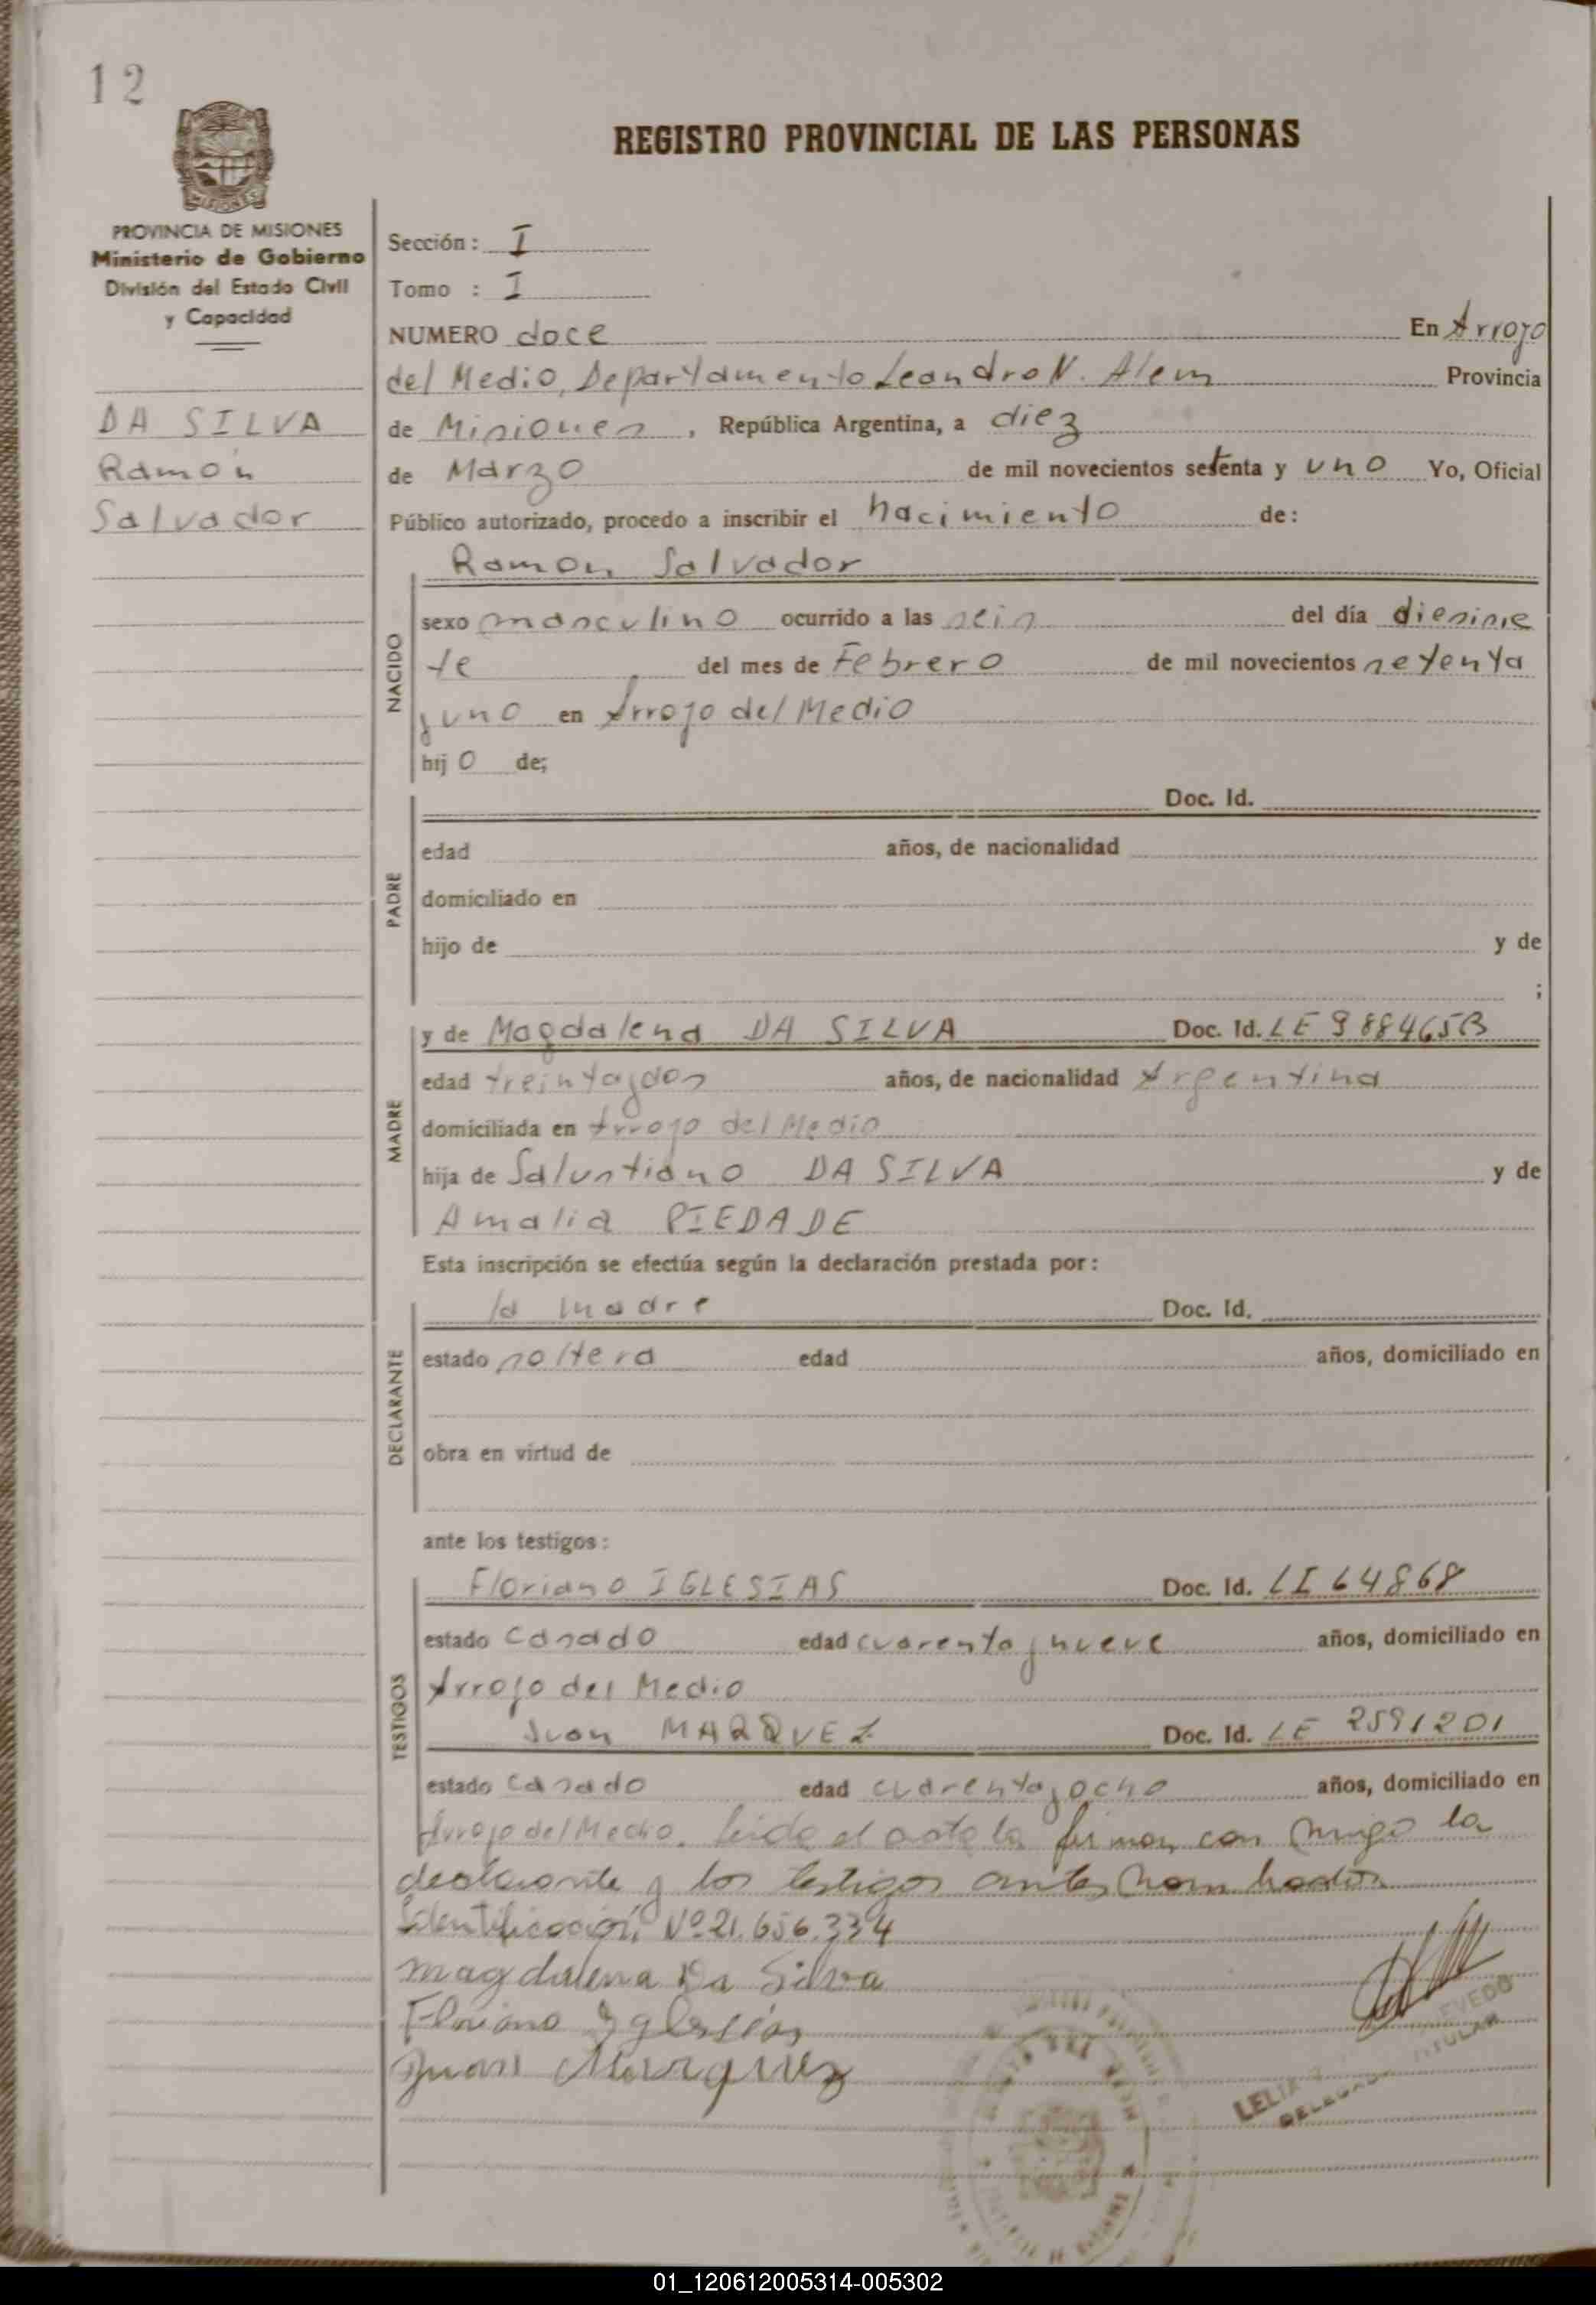 12
REGISTRO PROVINCIAL DE LAS PERSONAS
MISIONES
PROVINCIA DE MISIONES
Ministerio de Gobierno
División del Estado Civil
y Capacidad
DA SILVA
Ramón
Salvador
Sección: I
Tomo : I
NUMERO doce En Arroyo
del Medio, Departamento Leandro N. Alem Provincia
de Misiones, República Argentina, a diez
de Marzo de mil novecientos setenta y uno Yo, Oficial
Público autorizado, procedo a inscribir el nacimiento de:
Ramon Salvador
NACIDO
sexo masculino ocurrido a las seis del día diesisie
te del mes de Febrero de mil novecientos setenta
y uno en Arroyo del Medio
hijo de;
PADRE
Doc. Id.
edad años, de nacionalidad
domiciliado en
hijo de y de
;
MADRE
y de Magdalena DA SILVA Doc. Id. LE
edad treinta y dos años, de nacionalidad Argentina
domiciliada en Arroyo del Medio
hija de Salustiano DA SILVA y de
Amalia PIEDADE
Esta inscripción se efectúa según la declaración prestada por:
DECLARANTE
la madre Doc. Id.
estado soltera edad años, domiciliado en
obra en virtud de
ante los testigos:
TESTIGOS
Floriano IGLESIAS Doc. Id. LI 64868
estado casado edad cuarenta y nueve años, domiciliado en
Arroyo del Medio
Juan MARQUEZ Doc. Id. LE 2591201
estado casado edad cuarenta y ocho años, domiciliado en
Arroyo del Medio. leida el acta la firman con migo la
declarante y los testigos antes nombrados
Identificación Nº 21.656.334
magdalena Da Silva
Floriano Yglesias
Juan Marquez
LELIA EVEDO
DELEGADA TITULAR
01_120612005314-005302